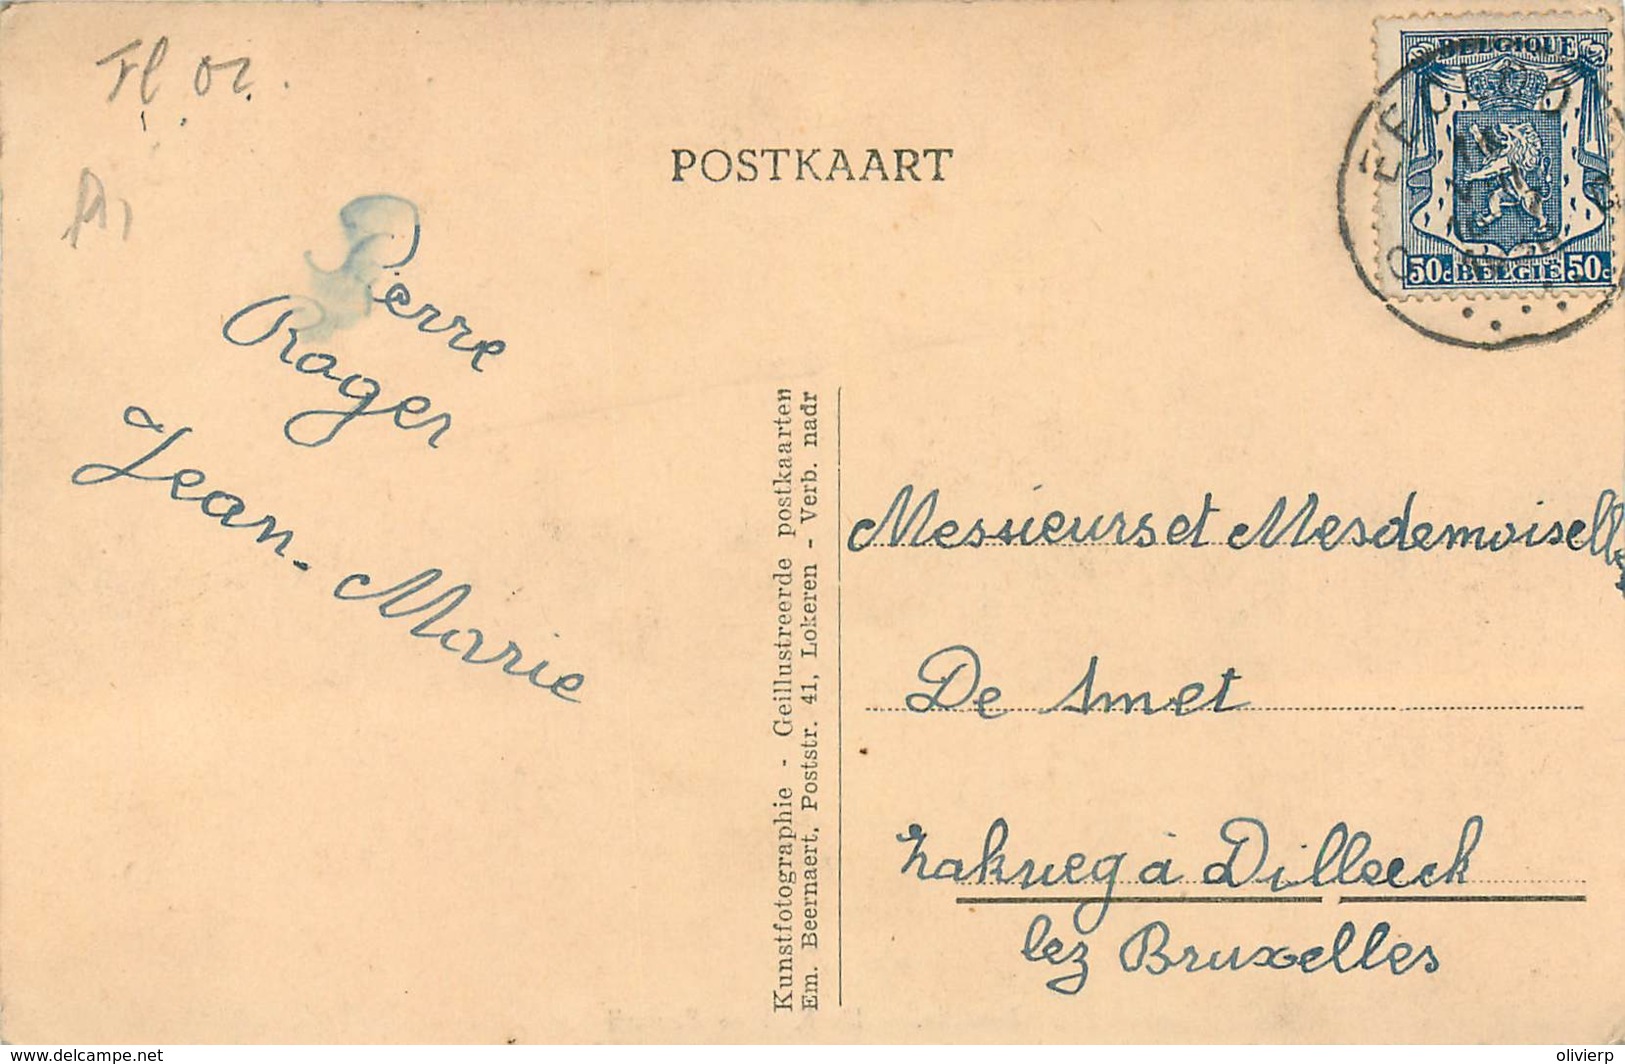 Fl. Or.
POSTKAART
BELGIQUE
50c BELGIË 50c
EECLOO
Pierre
Roger
Jean-Marie
Kunstfotographie - Geillustreerde postkaarten
Em. Beernaert, Poststr. 41, Lokeren - Verb. nadr
Messieurs et Mesdemoiselles
De Smet
à Dilbeek
lez Bruxelles
delcampe.net
olivierp